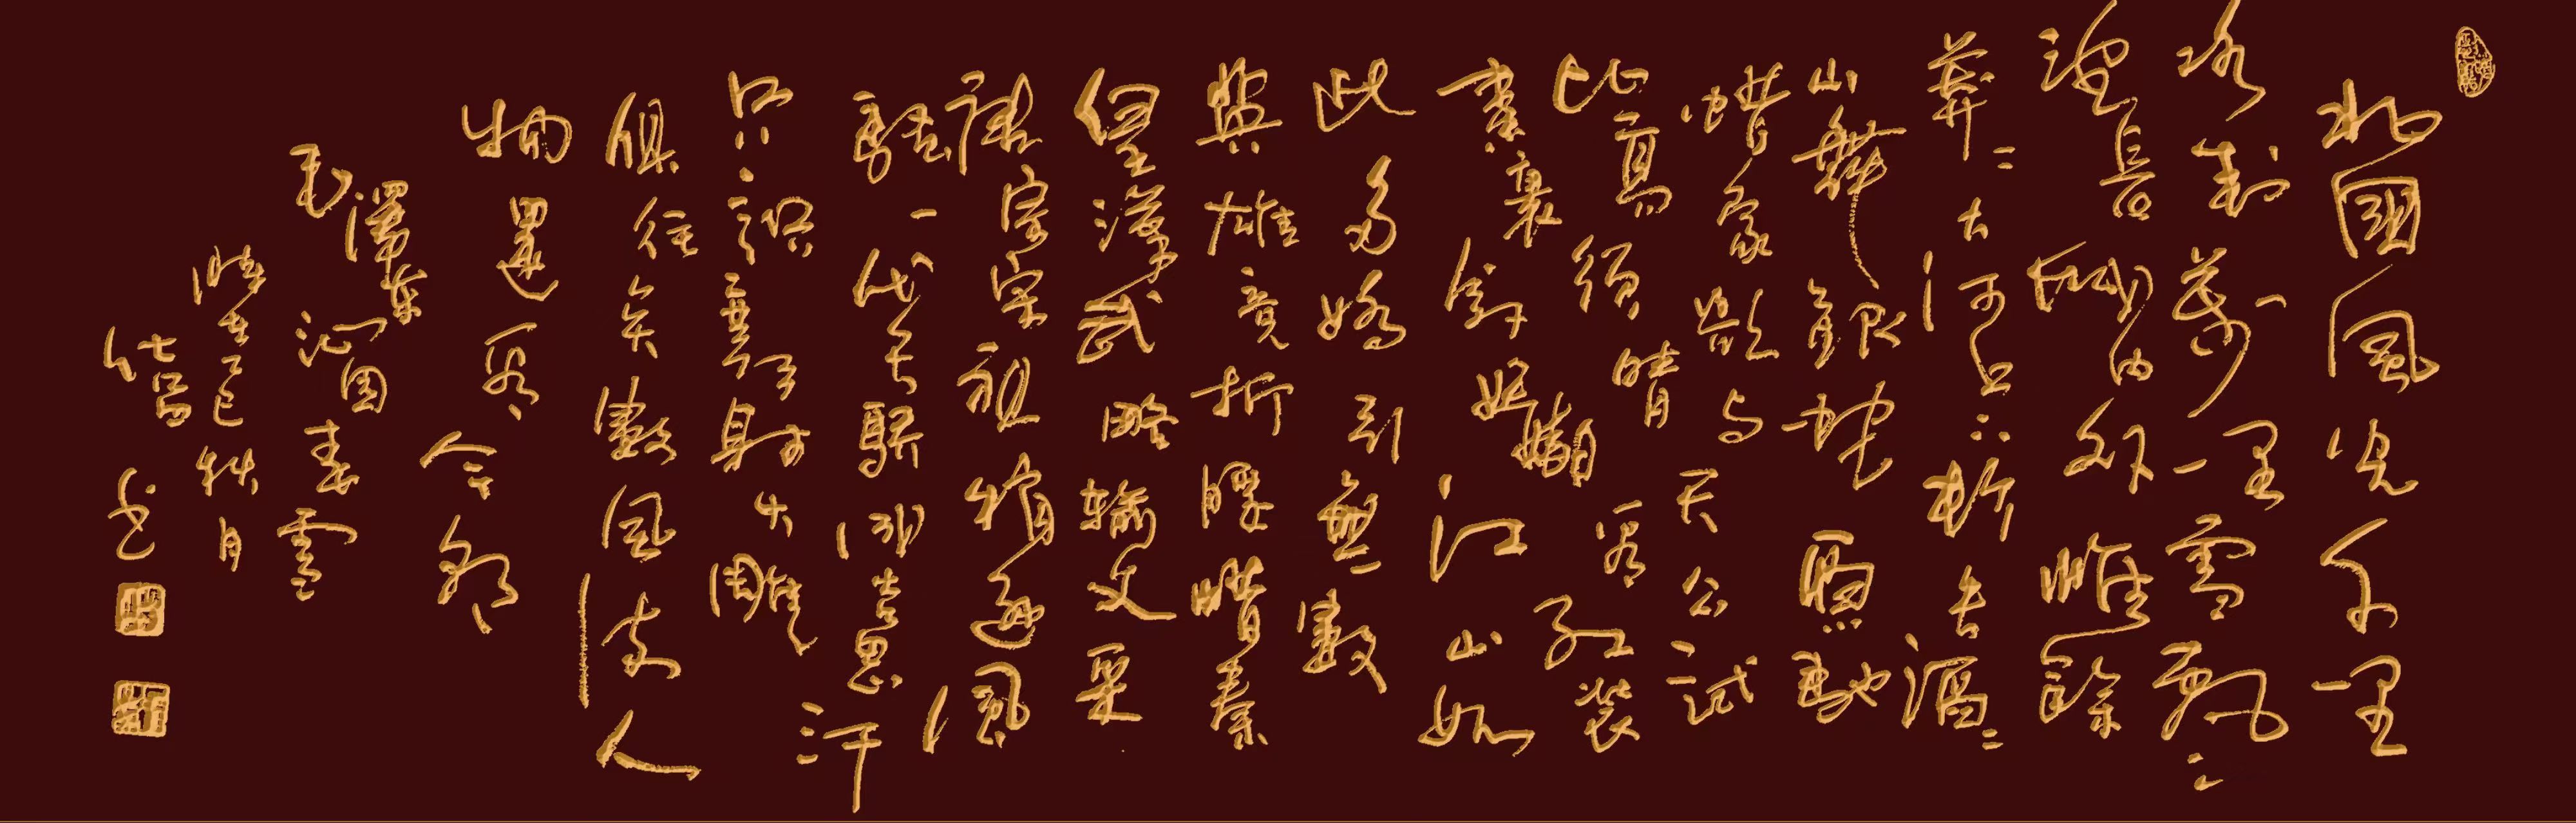 北國風光千里
冰封萬里雪飄
望長城内外惟餘
莽〻大河上下頓失滔〻
山舞銀蛇原馳
蠟象欲与天公試
比高須晴日看紅裝
素裹分外妖嬈江山如
此多嬌引無數
英雄競折腰惜秦
皇漢武略輸文采
唐宗宋祖稍遜風
騷一代天驕成吉思汗
只識彎弓射大雕
俱往矣數風流人
物還看今朝
毛澤東沁園春雪
歲在乙巳秋月
書